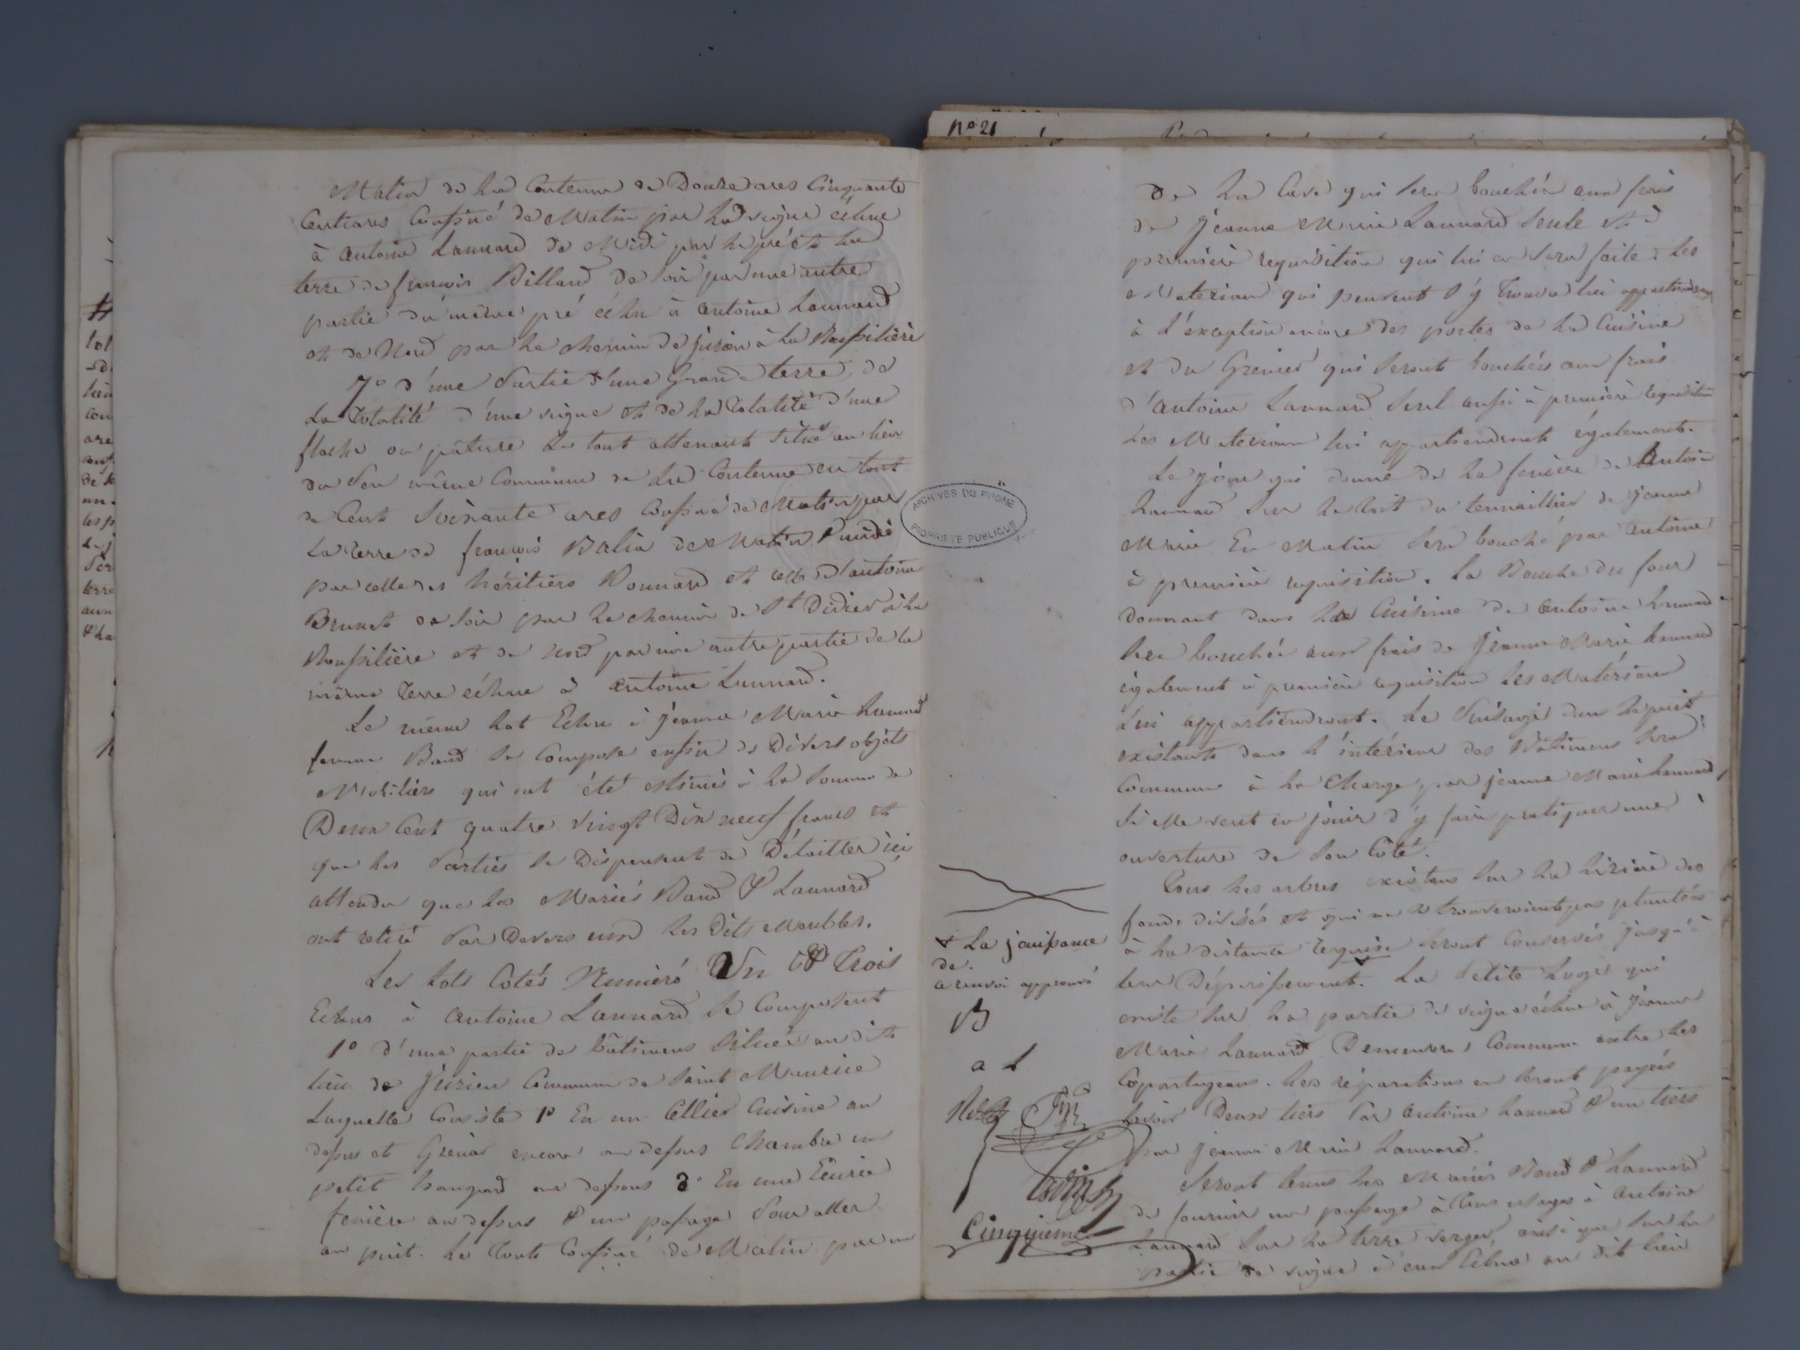 Matin de la Contenue de Douze ares Cinquante
Centiares Confiné de Matin par la vigne échue
à antoine Lannard de Midi par le pré et la
terre de françois Billand de Soir par une autre
partie du même pré échu à antoine Lannard
et de Nord par le chemin de à la Roussilière
7° d'une Partie d'une Grande terre, de
La Totalité d'une vigne et de la Totalité d'une
flache ou pâture Le tout attenant Situé au lieu
du Sou même Commune de La Contenue en tout
de Cent Soixante ares Confiné de Matin par
La Terre de françois Balia de Matin & midi
par celle des héritiers Bonnard et celle d'antoine
Brunet de Soir par le chemin de St Didier à la
Roussilière et de Nord par une autre partie de la
même Terre échue à antoine Lannard.
Le même Lot Echu à jeanne Marie Lannard
femme Band Se Compose enfin de Divers objets
Mobiliers qui ont été estimés à la Somme de
Deux Cent quatre vingt Dix neuf francs et
que les Parties Se Dispensent de Détailler ici
attendu que les Mariés Band & Lannard
ont retiré Par Devers eux les Dits Meubles.
Les Lots Cotés Numéro Un & Trois
Echus à antoine Lannard Se Composent
1° d'une partie de Bâtimens Situés au dit
lieu de Commune de Saint Maurice
Laquelle Consiste 1° En un Cellier Cuisine au
dessus et Grenier encore au dessus Chambre un
petit hangard au dessous 2° En une Ecurie
fenière au dessus & un passage Pour aller
au puit. Le Tout Confiné de Matin par un
N° 21
de la Cave qui Sera bouchée aux frais
de jeanne Marie Lannard Seule et à
première requisition qui lui en Sera faite. Les
Materiaux qui peuvent S'y trouver lui appartiendront
à l'exception encore des portes de la Cuisine
et du Grenier qui Seront bouchées aux frais
d'antoine Lannard Seul aussi à première requisition
Les Materiaux lui appartiendront également.
Le jour qui donne de la fenière de antoine
Lannard Sur le toit du de jeanne
Marie En Matin Sera bouché par antoine
à première requisition. La Bouche du four
donnant dans la Cuisine de antoine Lannard
Sera bouchée aux frais de jeanne Marie Lannard
également à première requisition Les Matériaux
Lui appartiendront. Le Puisage dans le puit
existant dans l'intérieur des Bâtimens Sera
Commun à la Charge par jeanne Marie Lannard
Si elle veut en jouir d'y faire pratiquer une
ouverture de Son Côté.
Tous les arbres existans Sur la lizière des
fonds divisés et qui ne se trouveroient pas plantés
à la distance requise Seront Conservés jusqu'à
leur Dépérissement. La Petite Loge qui
existe Sur la partie de vigne échue à jeanne
Marie Lannard Demeurera Commune entre les
Copartageans. Les réparations en Seront payées
Savoir Deux tiers Par antoine Lannard & un tiers
par jeanne Marie Lannard.
Seront tenus les Mariés Band & Lannard
de fournir un passage à tous usages à antoine
Lannard Sur la terre verger, ainsi que Sur la
partie de vigne à eux échue au dit lieu
ARCHIVES DU RHÔNE
PROPRIÉTÉ PUBLIQUE
+ La jouissance
de.
a renvoi approuvé
B
a L
Cinquieme